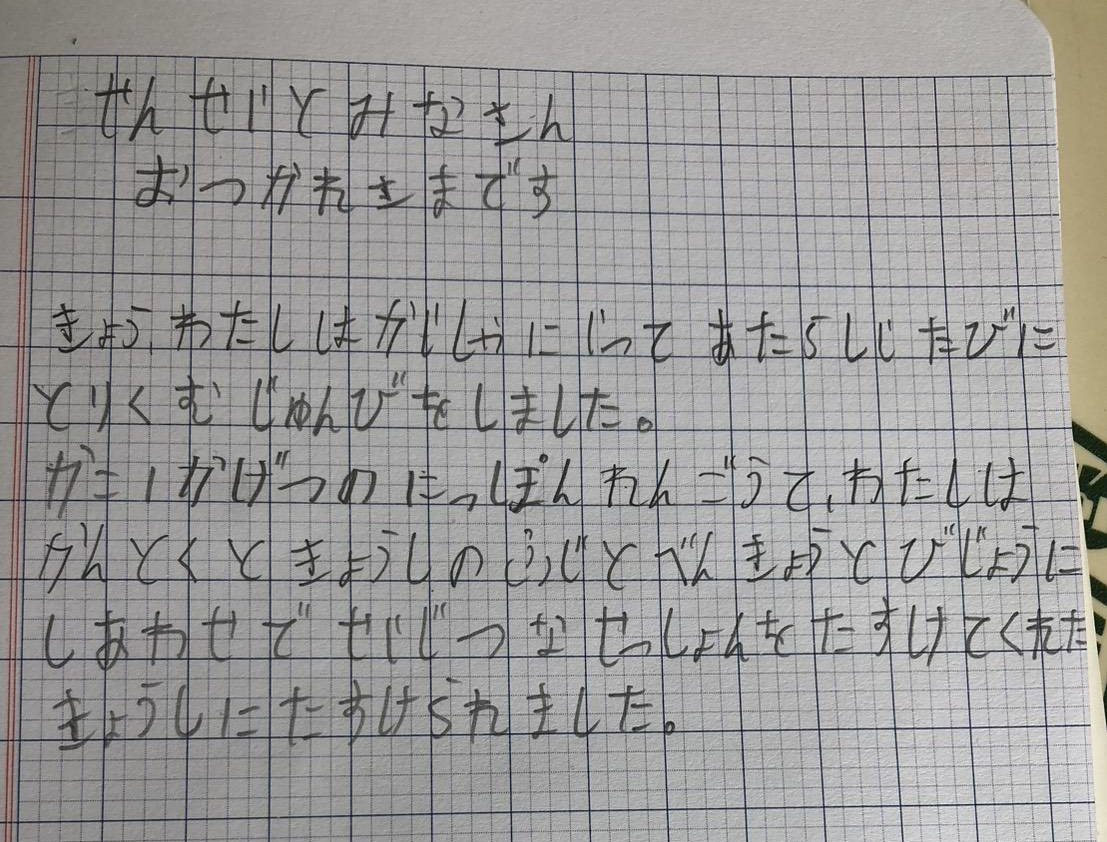 せんせいとみなさん
おつかれさまです
きょう、わたしはかいしゃにいって あたらしいたびに
とりくむ じゅんびをしました。
が二1かげつのにっぽんれんごうで、わたしは
かんとくときょうしの べんきょうとびじょうに
しあわせで せいじつなせっしょんをたすけてくれた
きょうしにたすけられました。